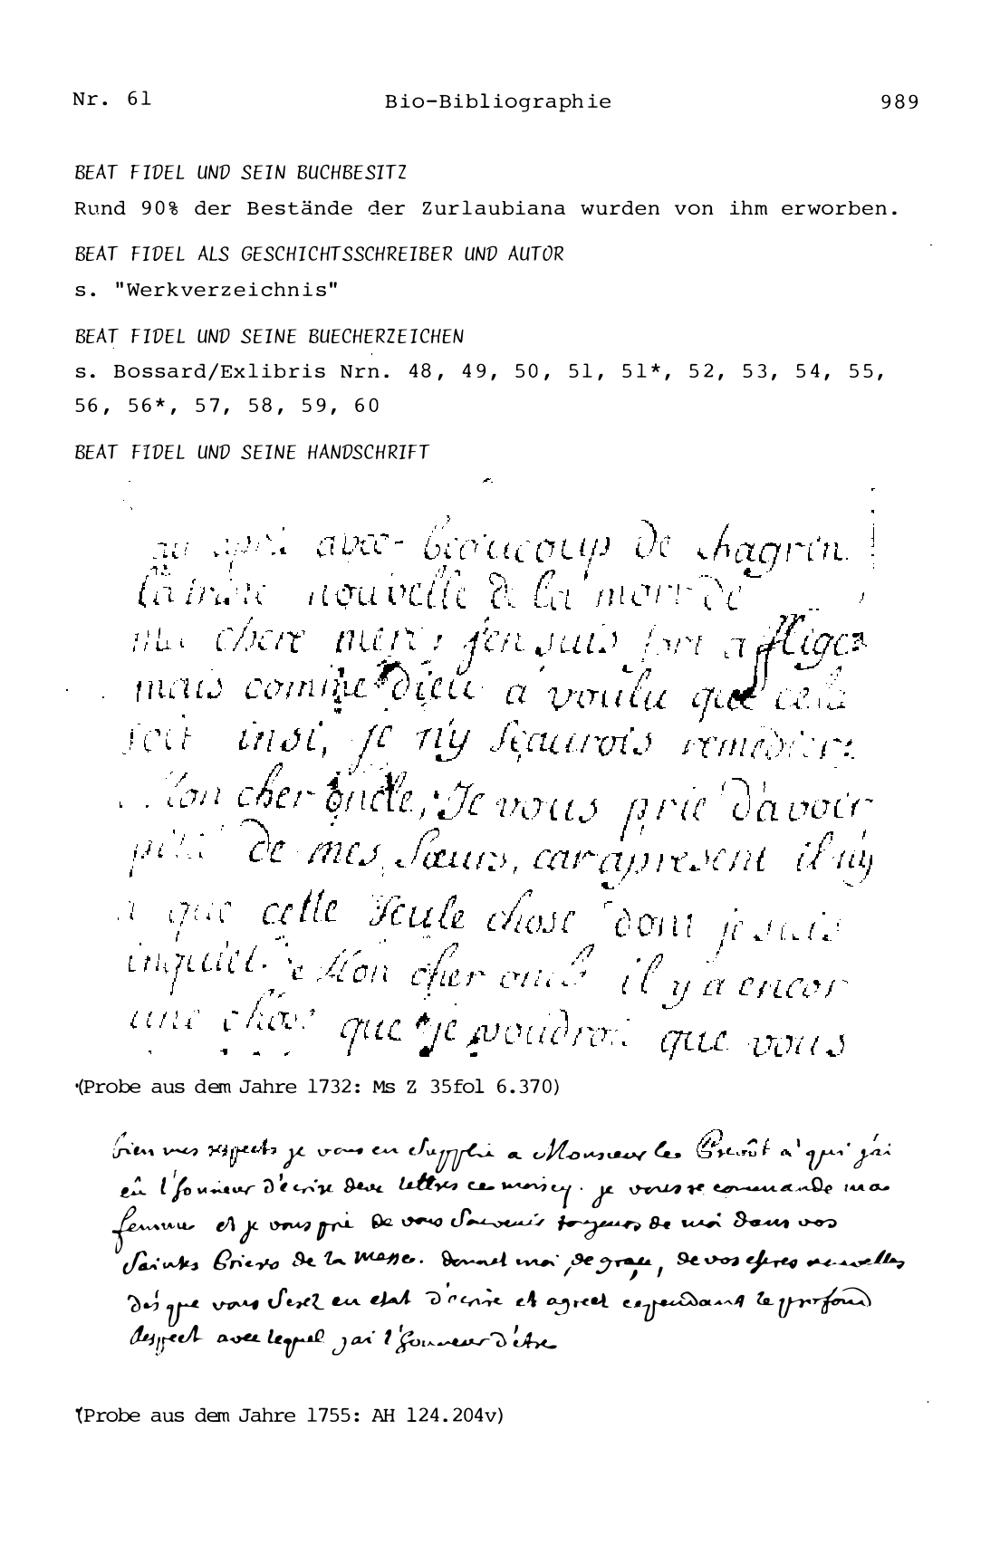 Nr. 61 Bio-Bibliographie 989
BEAT FIDEL UND SEIN BUCHBESITZ
Rund 90% der Bestände der Zurlaubiana wurden von ihm erworben.
BEAT FIDEL ALS GESCHICHTSSCHREIBER UND AUTOR
s. "Werkverzeichnis"
BEAT FIDEL UND SEINE BUECHERZEICHEN
s. Bossard/Exlibris Nrn. 48, 49, 50, 51, 51*, 52, 53, 54, 55,
56, 56*, 57, 58, 59, 60
BEAT FIDEL UND SEINE HANDSCHRIFT
avec beaucoup de chagrin
nouvelle de la mort de
ma chere mere j'en suis fort affligez
mais comme Dieu a voulu que cela
soit insi, je n'y sçaurois remedier:
Mon cher oncle, Je vous prie d'avoir
pitié de mes Sœurs, car apresent il n'y
a que cette seule chose dont je suis
inquiet. Mon cher oncle il y a encor
une chose que je voudrois que vous
(Probe aus dem Jahre 1732: Ms Z 35fol 6.370)
bien mes respects je vous en supplie a Monsieur le Prevôt a qui j'ai
eû l'honneur d'écrire deux lettres ce mois cy. je vous recommande ma
femme et je vous prie de vous souvenir toujours de moi dans vos
saintes Prieres de la Messe. donnet moi, de grace, de vos cheres nouvelles
dés que vous serez en etat d'écrire et agreet cependant le profond
Respect avec lequel j'ai l'honneur d'être
(Probe aus dem Jahre 1755: AH 124.204v)